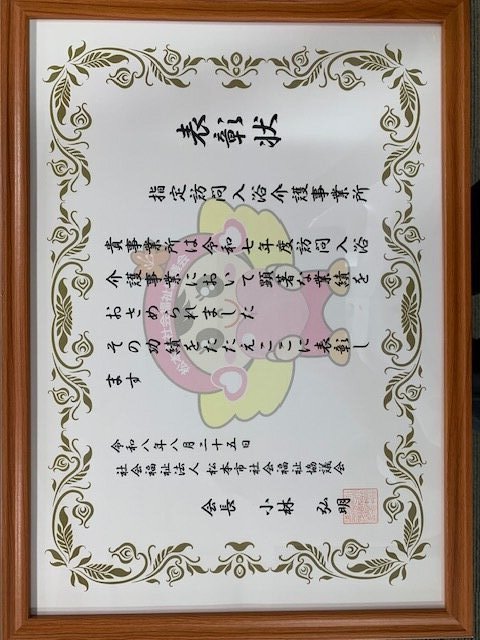 表彰状
指定訪問入浴介護事業所
貴事業所は令和七年度訪問入浴
介護事業において顕著な業績を
おさめられました
その功績をたたえここに表彰し
ます
令和八年八月二十五日
社会福祉法人 松本市社会福祉協議会
会長 小林 弘明